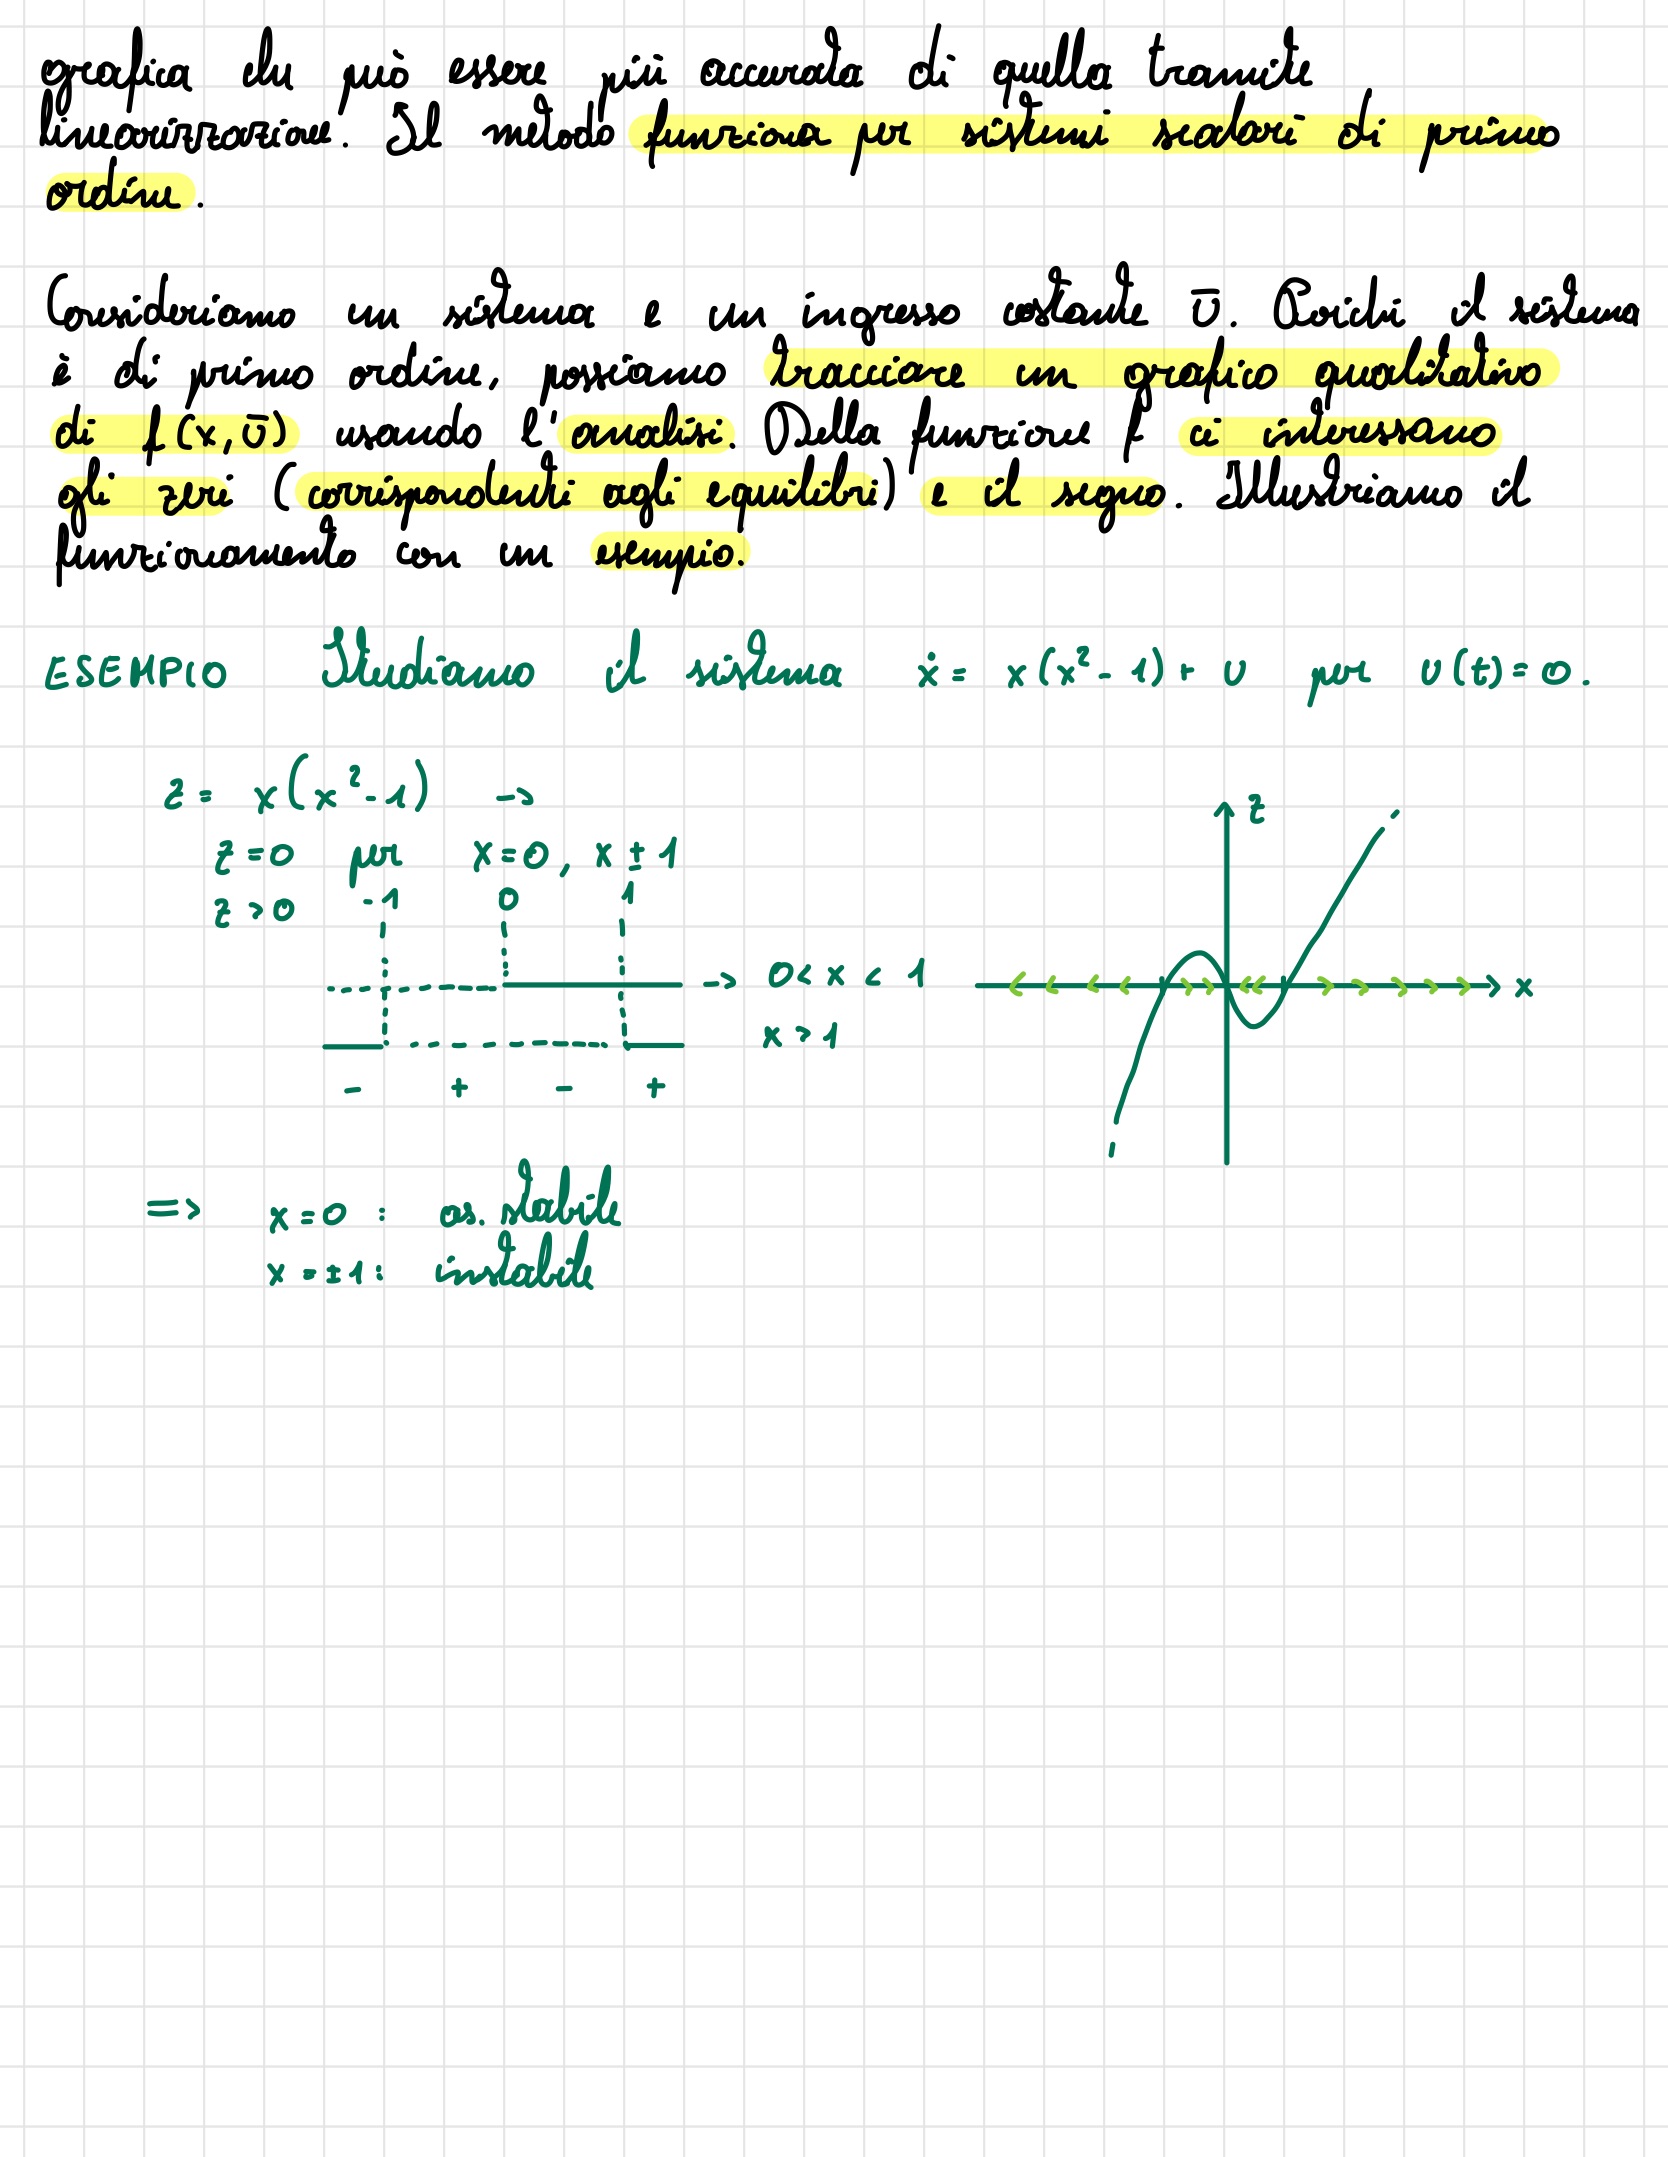 grafica che può essere più accurata di quella tramite
linearizzazione. Il metodo funziona per sistemi scalari di primo
ordine.
Consideriamo un sistema e un ingresso costante ū. Poiché il sistema
è di primo ordine, possiamo tracciare un grafico qualitativo
di f(x, ū) usando l'analisi. Della funzione f ci interessano
gli zeri (corrispondenti agli equilibri) e il segno. Illustriamo il
funzionamento con un esempio.
ESEMPIO Studiamo il sistema ẋ = x(x²-1)+ u per u(t)=0.
z = x(x²-1) ->
z=0 per x=0, x ± 1
z>0 -1 0 1
-> 0< x < 1
x > 1
- + - +
z
x
=> x=0 : as. stabile
x=±1: instabile